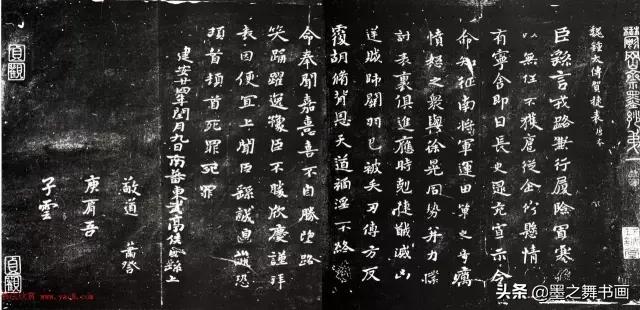 魏鍾太傅賀捷表 唐本
臣繇言戎路兼行履險冒寒
以無任不獲扈從企佇懸情
有寧舍即日長史充宣示令
命知征南將軍運田單之奇厲
憤怒之衆與徐晃同勢并力撲
討表裏俱進應時剋捷馘滅凶
逆賊帥關羽已被矢刃傅方反
覆胡脩背恩天道禍淫不終
命奉聞嘉憙喜不自勝望路
笑踊躍逸豫臣不勝欣慶謹拜
表因便宜上聞臣繇誠惶誠恐
頓首頓首死罪死罪
建安廿四年閏月九日南蕃東武亭侯臣繇上
敬道
庾肩吾
子雲
貞觀
貞觀
头条 @墨之舞书画